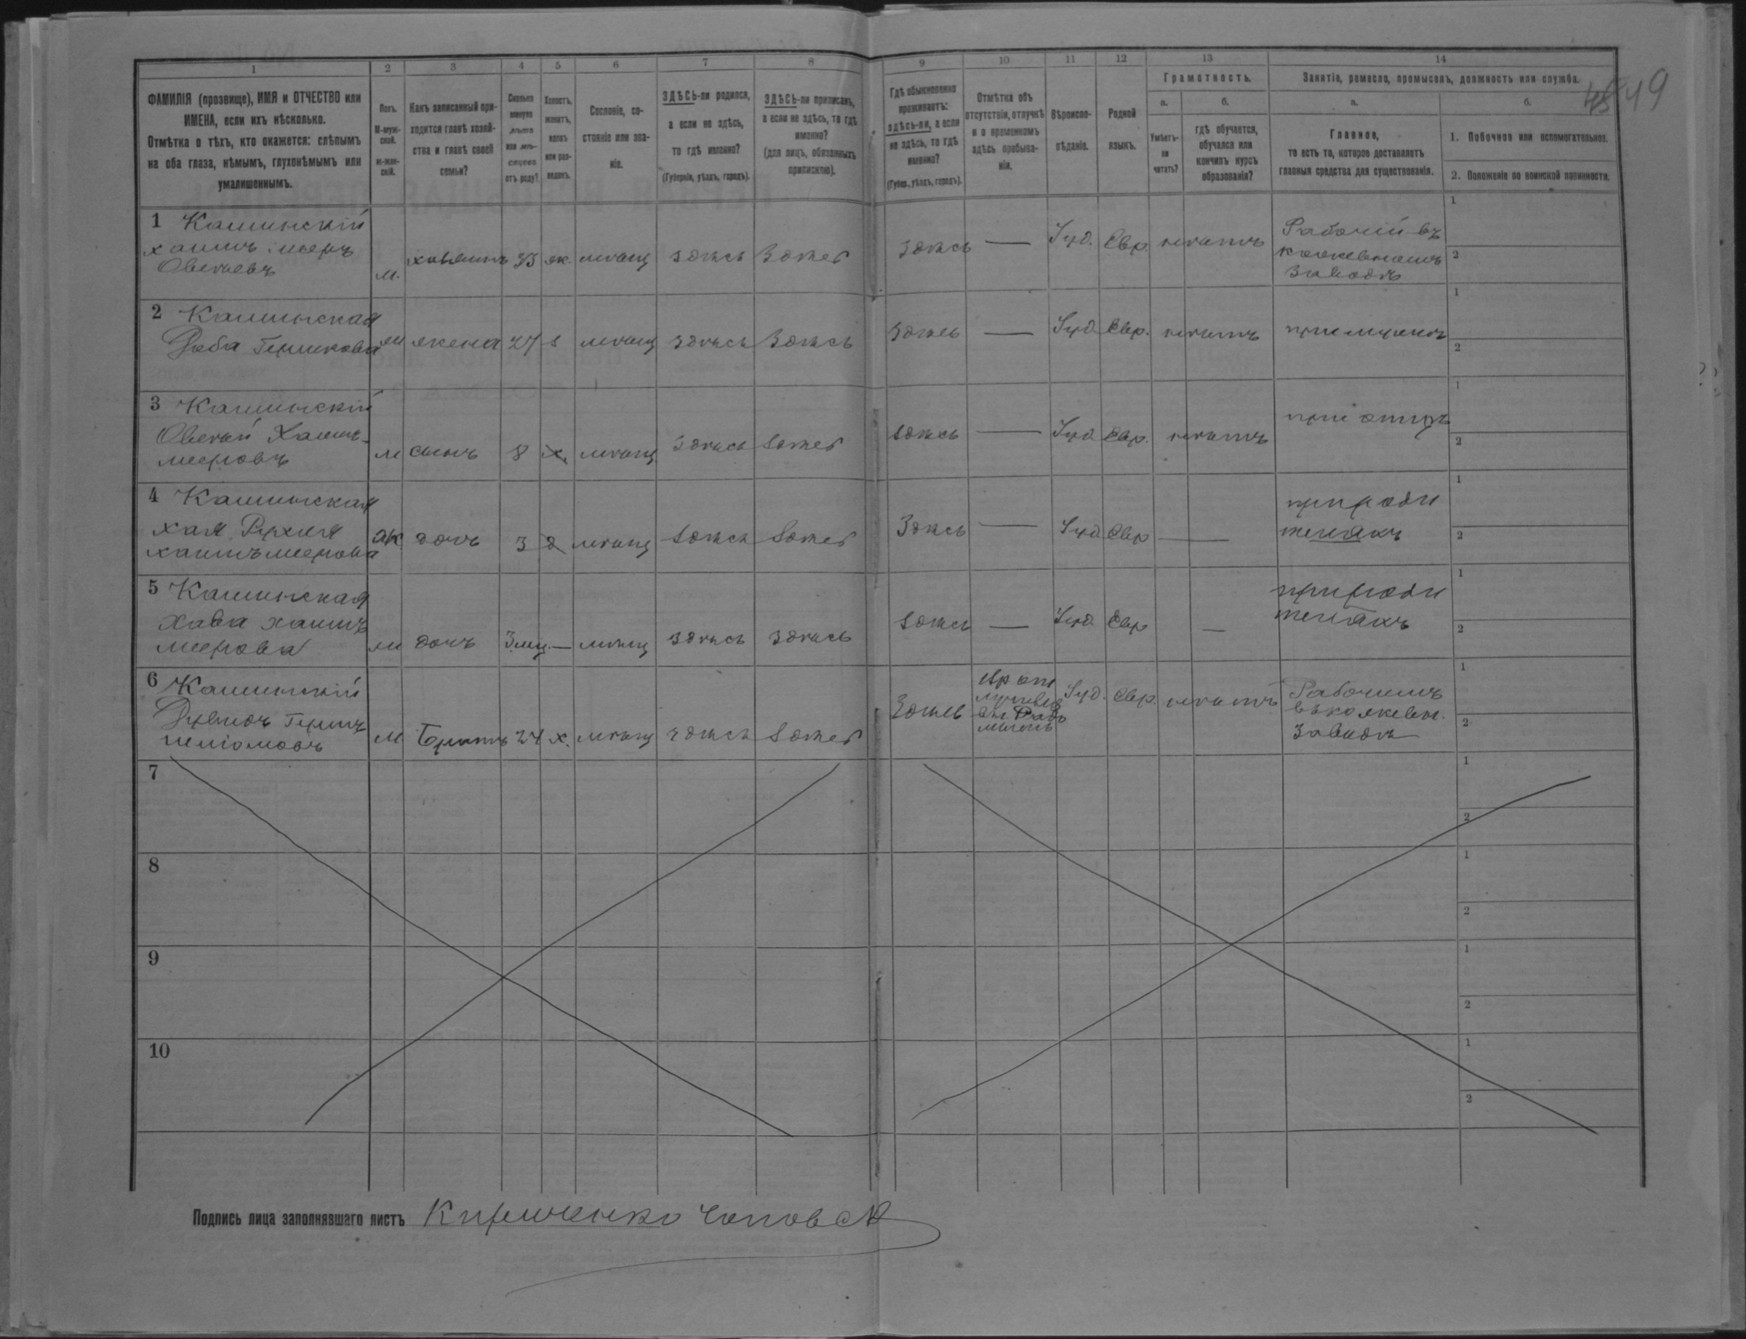 1 2 3 4 5 6 7 8 9 10 11 12 13 14
ФАМИЛІЯ (прозвище), ИМЯ и ОТЧЕСТВО или
ИМЕНА, если ихъ нѣсколько.
Отмѣтка о тѣхъ, кто окажется: слѣпымъ
на оба глаза, нѣмымъ, глухонѣмымъ или
умалишеннымъ.
Полъ.
М-муж-
ской.
ж-жен-
скій.
Какъ записанный при-
ходится главѣ хозяй-
ства и главѣ своей
семьи?
Сколько
минуло
лѣтъ
или мѣ-
сяцевъ
отъ роду?
Холостъ,
женатъ,
вдовъ
или раз-
веденъ.
Сословіе, со-
стояніе или зва-
ніе.
ЗДѢСЬ-ли родился,
а если не здѣсь,
то гдѣ именно?
(Губернія, уѣздъ, городъ).
ЗДѢСЬ-ли приписанъ,
а если не здѣсь, то гдѣ
именно?
(для лицъ, обязанныхъ
припискою).
Гдѣ обыкновенно
проживаетъ:
здѣсь-ли, а если
не здѣсь, то гдѣ
именно?
(Губер., уѣздъ, городъ).
Отмѣтка объ
отсутствіи, отлучкѣ
и о временномъ
здѣсь пребыва-
ніи.
Вѣроиспо-
вѣданіе.
Родной
языкъ.
Грамотность.
а.
Умѣетъ-
ли
читать?
б.
гдѣ обучается,
обучался или
кончилъ курсъ
образованія?
Занятіе, ремесло, промыселъ, должность или служба.
а.
Главное,
то есть то, которое доставляетъ
главныя средства для существованія.
б.
1. Побочное или вспомогательное.
2. Положеніе по воинской повинности.
49
1 Кашинскій
хаимъ мееръ
Овсеевъ
м. хозяинъ 33 ж. мѣщ здѣсь Здѣсь здѣсь — Іуд. Евр нѣтъ
Рабочій въ
кожевномъ
заводѣ
1
2
2 Кашинская
Гершкова
жена 27 мѣщ здѣсь Здѣсь Здѣсь — Іуд Евр. нѣтъ при мужѣ
1
2
3 Кашинскій
Овсей Хаимъ-
мееровъ
м сынъ 8 х. мѣщ здѣсь здѣсь здѣсь — Іуд Евр. нѣтъ при отцѣ
1
2
4 Кашинская
хая
хаимъмеерова
ж дочь 3 мѣщ здѣсь здѣсь Здѣсь — Іуд Евр —
при роди
теляхъ
1
2
5 Кашинская
Хава хаимъ
меерова
дочь 3 мц — мѣщ здѣсь здѣсь здѣсь — Іуд Евр —
при роди
теляхъ
1
2
6 Кашинскій
м Братъ 24 х. мѣщ здѣсь здѣсь Здѣсь
Іуд. Евр. нѣтъ
Рабочимъ
въ кожевен.
заводѣ
1
2
7
1
2
8
1
2
9
1
2
10
1
2
Подпись лица заполнявшаго листъ